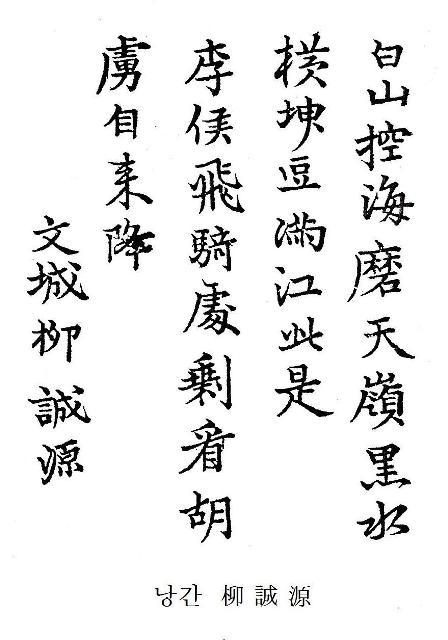 白山控海磨天嶺黒水
橫坤豆滿江此是
李侯飛騎處剩看胡
虜自来降
文城柳誠源
낭간 柳誠源